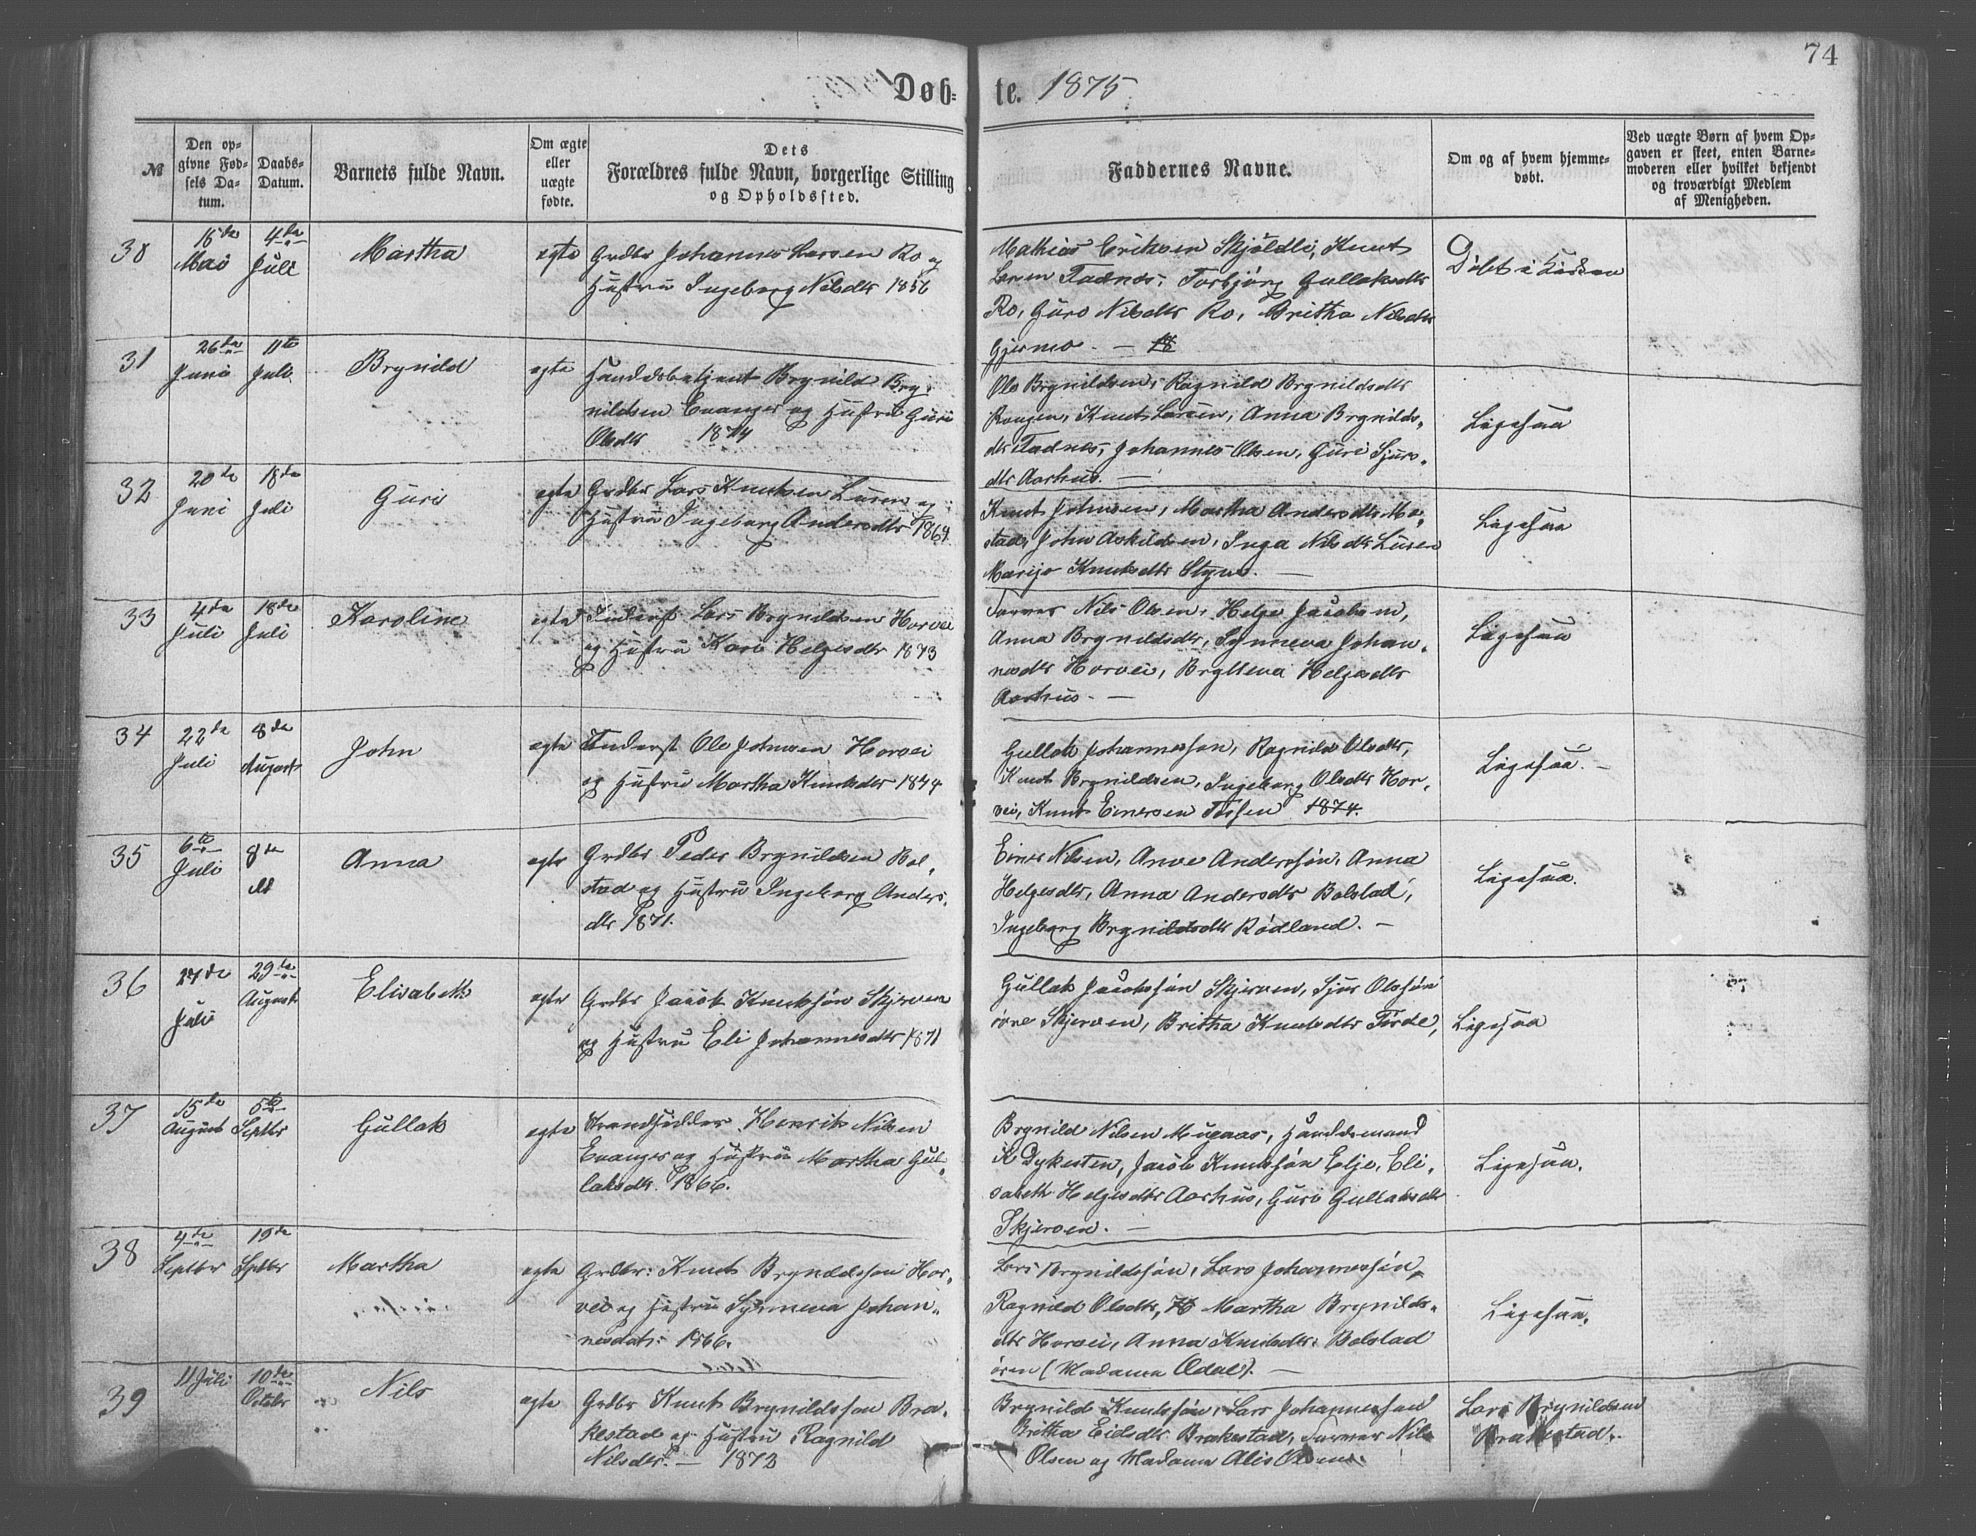 74
Døb- te. 1875
№
Den op-
givne Fød-
sels Da-
tum.
Daabs-
Datum.
Barnets fulde Navn.
Om ægte
eller
uægte
fødte.
Dets
Forældres fulde Navn, borgerlige Stilling
og Opholdssted.
Faddernes Navne.
Om og af hvem hjemme-
døbt.
Ved uægte Børn af hvem Op-
gaven er skeet, enten Barne-
moderen eller hvilket bekjendt
og troværdigt Medlem
af Menigheden.
30
Mai
4de
Juli
Martha
egte
Grdbr Johannes Larsen Ro og
Hustru Ingeborg Nilsdtr 1856
Mathias Eriksen Skjeldli, Knut
Larsen Fadnes, Torbjørg Gullaksdtr
Ro, Guro Nilsdtr Ro, Britha Nilsdtr
Gjermo. —
Døbt i Kirken
31
26de
Juni
11te
Juli
Brynild
egte
Handdsbetjent Brynild Bry-
nildsen Evanger og Hustru Guri
Olsdtr 1874
Ole Brynildsen, Ragnild Brynildsdtr
Rongen, Knut Larsen, Anna Brynilds-
dtr Fadnes, Johannes Olsen, Guri Sjurs-
dtr Aarhus. —
Ligesaa
32
20de
Juni
18de
Juli
Guri
egte
Grdbr Lars Knutsen Lusen og
Hustru Ingeborg Andersdtr 1864
Knut Johnsen, Martha Andersdtr Mo-
stad, John Askildsen, Inga Nilsdtr Lusen
Marijo Knutsdtr Styve. —
Ligesaa
33
4de
Juli
18de
Juli
Karoline
egte
Inderst Lars Brynildsen Horvei
og Hustru Kari Helgesdtr 1873
Farver Nils Olsen, Helge Jacobsen,
Anna Brynildsdtr, Synneva Johan-
nesdtr Horvei, Brytteva Helgesdtr
Aarhus. —
Ligesaa
34
22de
Juli
8de
August
John
egte
Inderst Ole Johnsen Horvei
og Hustru Martha Knutsdtr 1874
Gullak Johannessøn, Ragnilda Olsdtr,
Knut Brynildsen, Ingeborg Olsdtr Hor-
vei, Knut Einersen 1874.
Ligesaa. —
35
6te
Juli
8de
dt
Anna
egte
Grdbr Peder Brynildsen Bol-
stad og Hustru Ingeborg Anders-
dtr 1871.
Einer Nilsen, Anve Anderssøn, Anna
Helgesdtr, Anna Andersdtr Bolstad,
Ingeborg Brynildsdtr Rødland. —
Ligesaa.
36
27de
Juli
29de
August
Elisabeth
egte
Grdbr Jacob Knutsøn Skjerven
og Hustru Eli Johannesdtr 1871
Gullak Jacobsøn Skjerven, Sjur Olssøn
øvre Skjerven, Britha Knutsdtr Førde,
Ligesaa
37
15de
August
5te
Septbr
Gullak
egte
Strandsidder Henrik Nilsen
Evanger og Hustru Martha Gul-
laksdtr. 1866.
Brynild Nilsen Mugaas, Handdsmand
K Dykesten, Jacob Knutsøn Elje, Eli-
sabeth Helgesdtr Aarhus, Guri Gullaksdtr
Skjerven. —
Ligesaa.
38
4de
Septbr
19de
Septbr
Martha
egte
Grdbr: Knut Brynildsson Hor-
vei og Hustru Synneva Johan-
nesdatr: 1866.
Lars Brynildssøn, Lars Johannessøn
Ragnild Olsdtr, Martha Brynilds-
dtr Horvei, Anna Knutsdtr. Bolstad
øren (Madama Odal). —
Ligesaa.
39
11 Juli
10de
Octobr
Nils
egte
Grdbr Knut Brynildsson Bra-
kestad og Hustru Ragnild
Nilsdtr. — 1873
Brynild Knutssøn, Lars Johannesson
Britha Eidsdtr Brakestad, Farver Nils
Olsen og Madama Alis Olsen.
Lars Brynildsen
Brakestad.